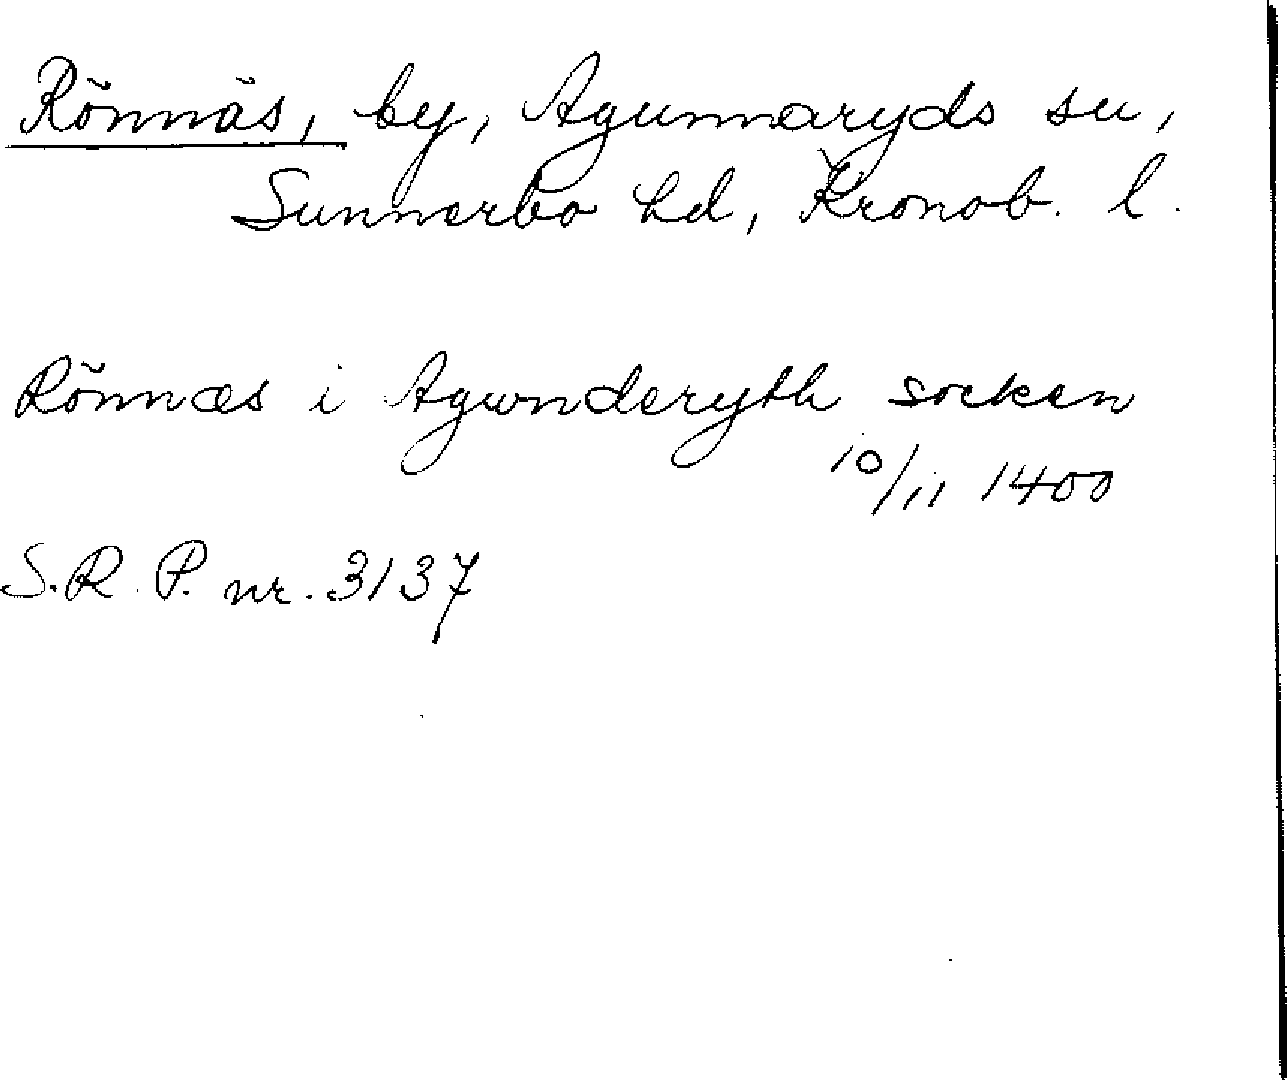 Rönnäs, by, Agunnaryds sn,
Sunnerbo hd, Kronob. l.
Rönnæs i Agwnderyth socken
10/11 1400
S.R.P. nr. 3137